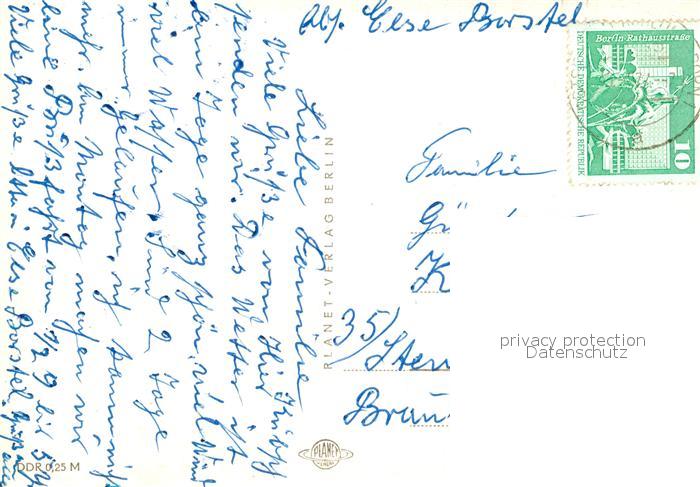 Abs. Else Borstel
Liebe Familie
Viele Grüße von hier
senden wir. Das Wetter ist
ein Tage ganz schön, viel Wind
viel Wasser. Sind 2 Tage
nur gelaufen, ich kann nicht
mehr. Am Montag machen wir
eine Busfahrt von 1/2 9 bis 5 U
Viele Grüße Else Borstel
Familie
Gü
K
35/Stern
Braun
PLANET-VERLAG BERLIN
PLANET
VERLAG
DDR 0,25 M
Berlin-Rathausstraße
DEUTSCHE DEMOKRATISCHE REPUBLIK
10
privacy protection
Datenschutz